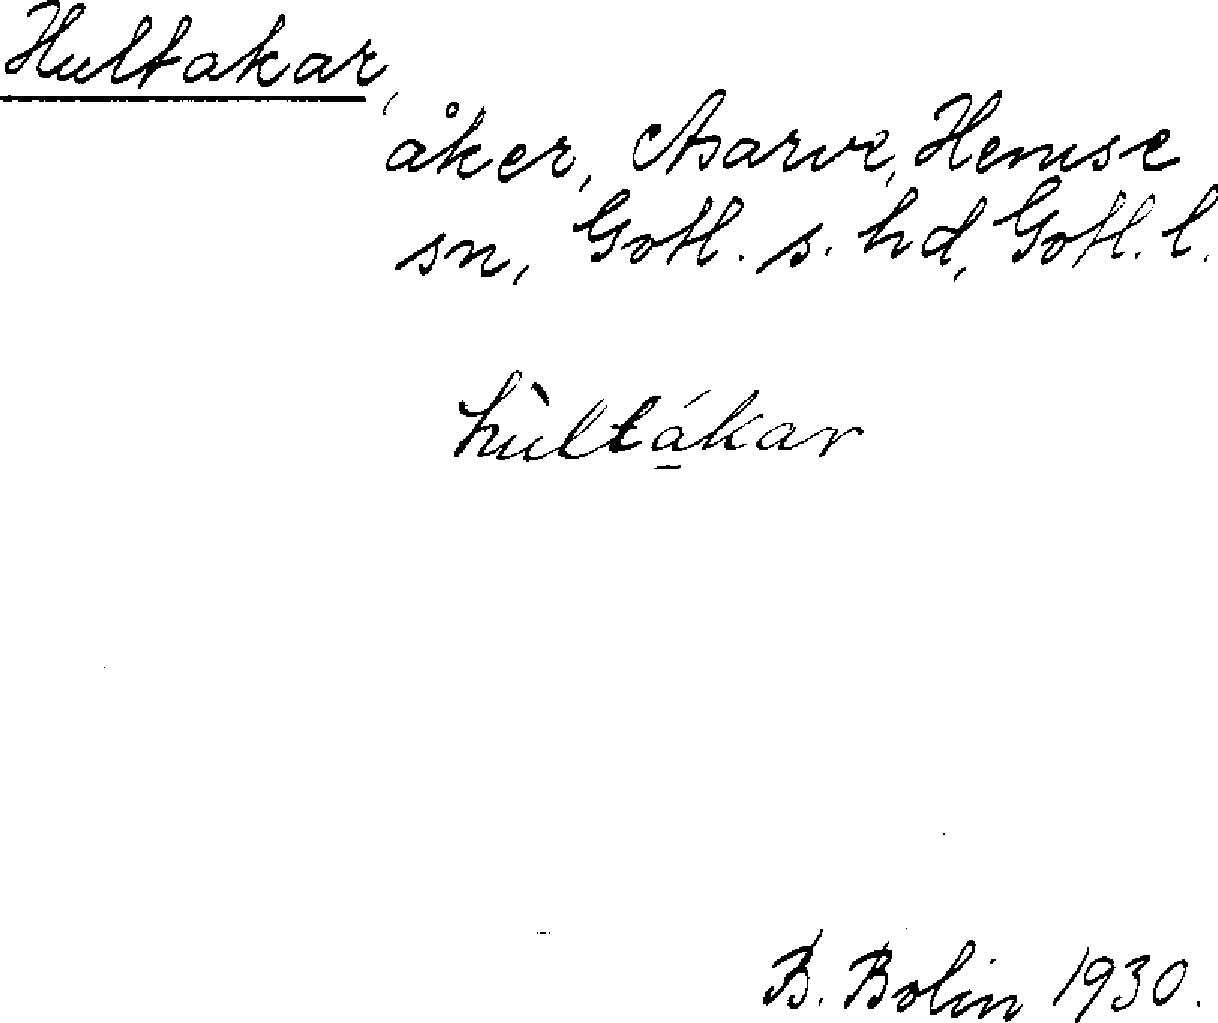 Hultakar,
åker, Asarve, Hemse
sn, Gotl. s. hd, Gotl. l.
hùltá̱kar
B. Bolin 1930.